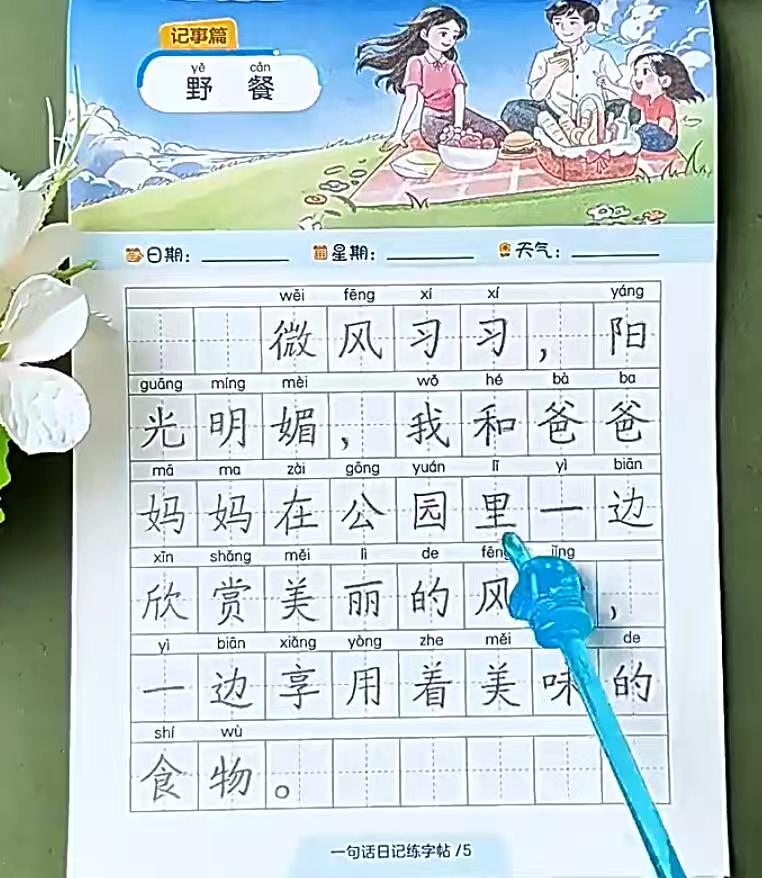 记事篇
yě cān
野 餐
日期：
星期：
天气：
wēi fēng xí xí yáng
微风习习，阳
guāng míng mèi wǒ hé bà ba
光明媚，我和爸爸
mā ma zài gōng yuán lǐ yì biān
妈妈在公园里一边
xīn shǎng měi lì de fēng jǐng
欣赏美丽的风，
yì biān xiǎng yòng zhe měi de
一边享用着美味的
shí wù
食物。
一句话日记练字帖 /5